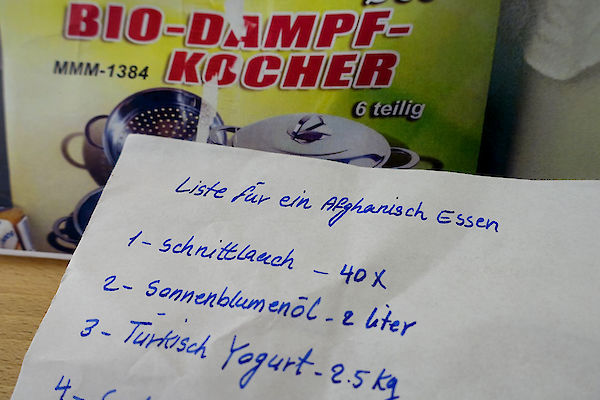 BIO-DAMPF-
MMM-1384
KOCHER
6 teilig
Liste für ein Afghanisch Essen
1- schnittlauch - 40 X
2- Sonnenblumenöl - 2 liter
3- Türkisch Yogurt - 2.5 Kg
4-